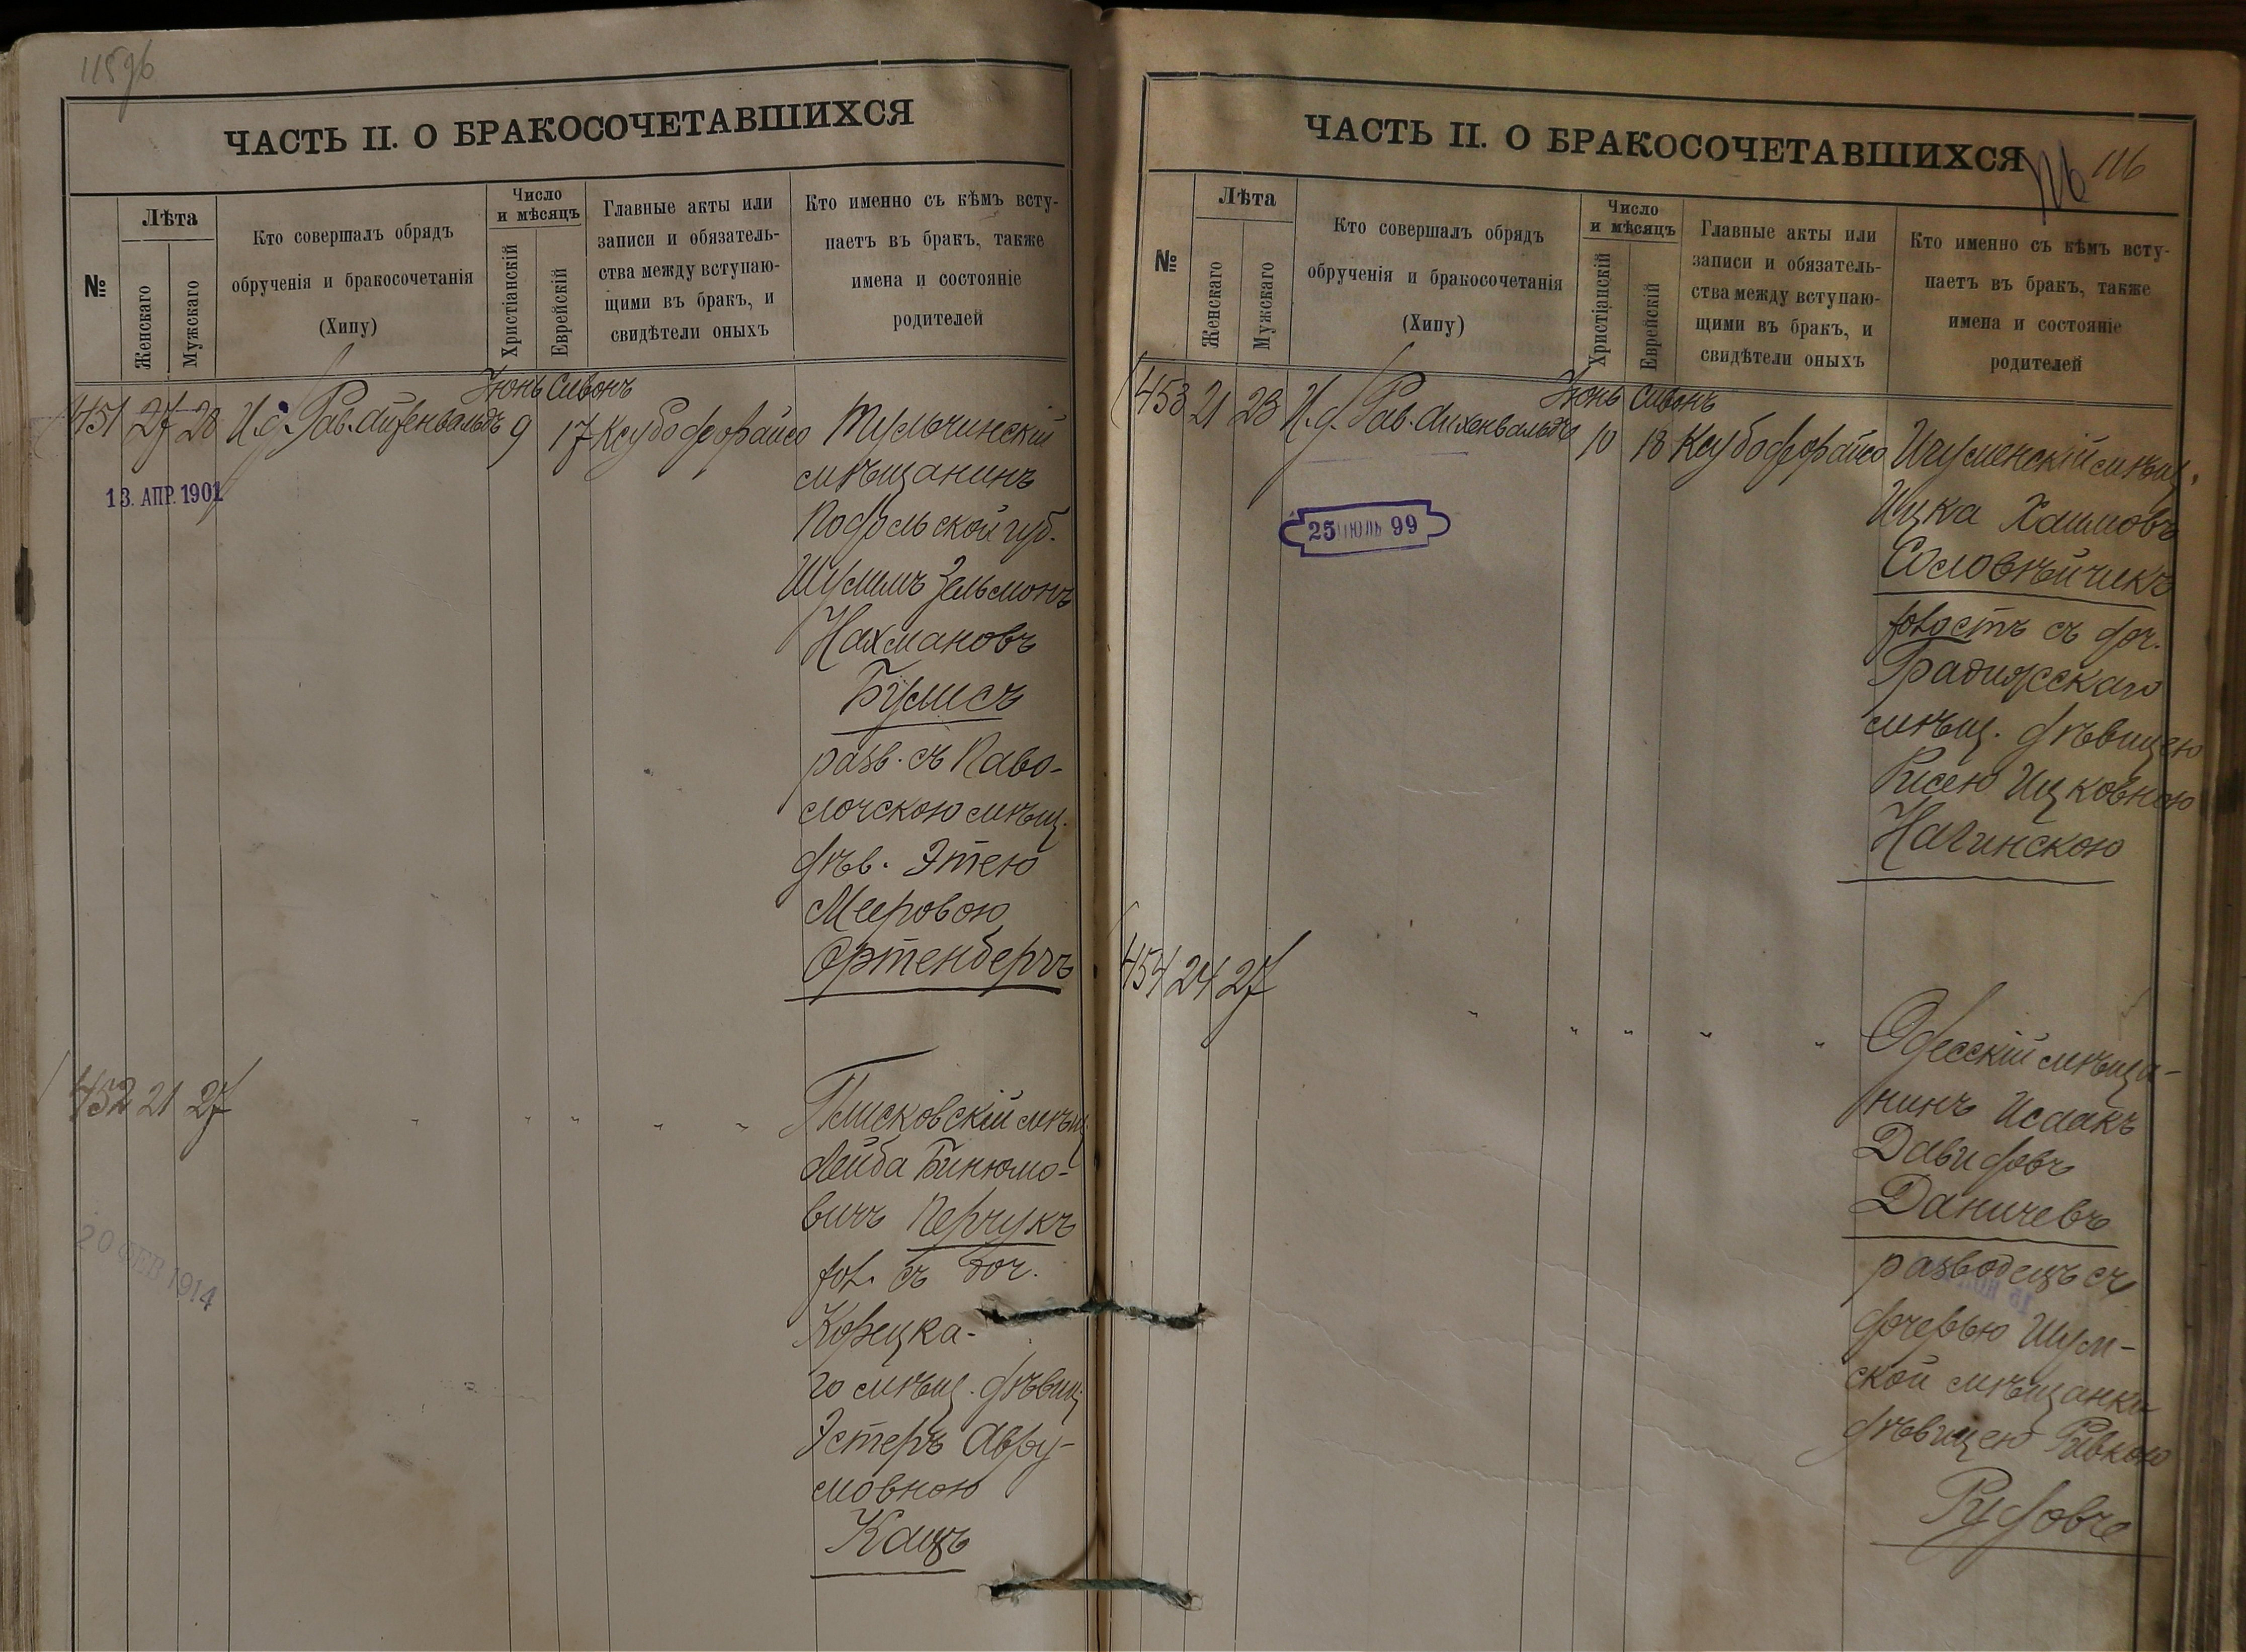 11596
ЧАСТЬ II. О БРАКОСОЧЕТАВШИХСЯ
№
Лѣта
Женскаго
Мужскаго
Кто совершалъ обрядъ
обрученія и бракосочетанія
(Хипу)
Число
и мѣсяцъ
Христіанскій
Еврейскій
Главные акты или
записи и обязатель-
ства между вступаю-
щими въ бракъ, и
свидѣтели оныхъ
Кто именно съ кѣмъ всту-
паетъ въ бракъ, также
имена и состояніе
родителей
Іюнь Сивонъ
451 27 28 И. д. Рав. Айхенвальдъ 9 17 Ксубо деорайсо Тульчинскій
13. АПР. 1901
мѣщанинъ
Подольской губ.
Шулимъ Зельмонъ
Нахмановъ
Булисъ
разв. съ Паво-
лочскою мѣщ.
дѣв. Этею
Мееровою
Ортенбергъ
452 21 27 " " " " " Плисковскій мѣщ.
Лейба Бинюмо-
вичъ Перчукъ
хол. съ доч.
20 ФЕВ 1914
Корецка-
го мѣщ. дѣвиц.
Эстеръ Авру-
мовною
Кацъ
ЧАСТЬ II. О БРАКОСОЧЕТАВШИХСЯ
116 116
№
Лѣта
Женскаго
Мужскаго
Кто совершалъ обрядъ
обрученія и бракосочетанія
(Хипу)
Число
и мѣсяцъ
Христіанскій
Еврейскій
Главные акты или
записи и обязатель-
ства между вступаю-
щими въ бракъ, и
свидѣтели оныхъ
Кто именно съ кѣмъ всту-
паетъ въ бракъ, также
имена и состояніе
родителей
Іюнь Сивонъ
453 21 23 И. д. Рав. Айхенвальдъ 10 18 Ксубо деорайсо Игуменскій мѣщ.
25 ІЮЛЬ 99
Ицка Хаимовъ
Соловѣйчикъ
холостъ съ доч.
Градижскаго
мѣщ. дѣвицею
Рисею Ицковною
Нагинскою
454 24 27 " " " " " Одесскій мѣща-
нинъ Исаакъ
Давидовъ
Даничевъ
разводецъ съ
дочерью Шум-
ской мѣщанки
дѣвицею Ривкою